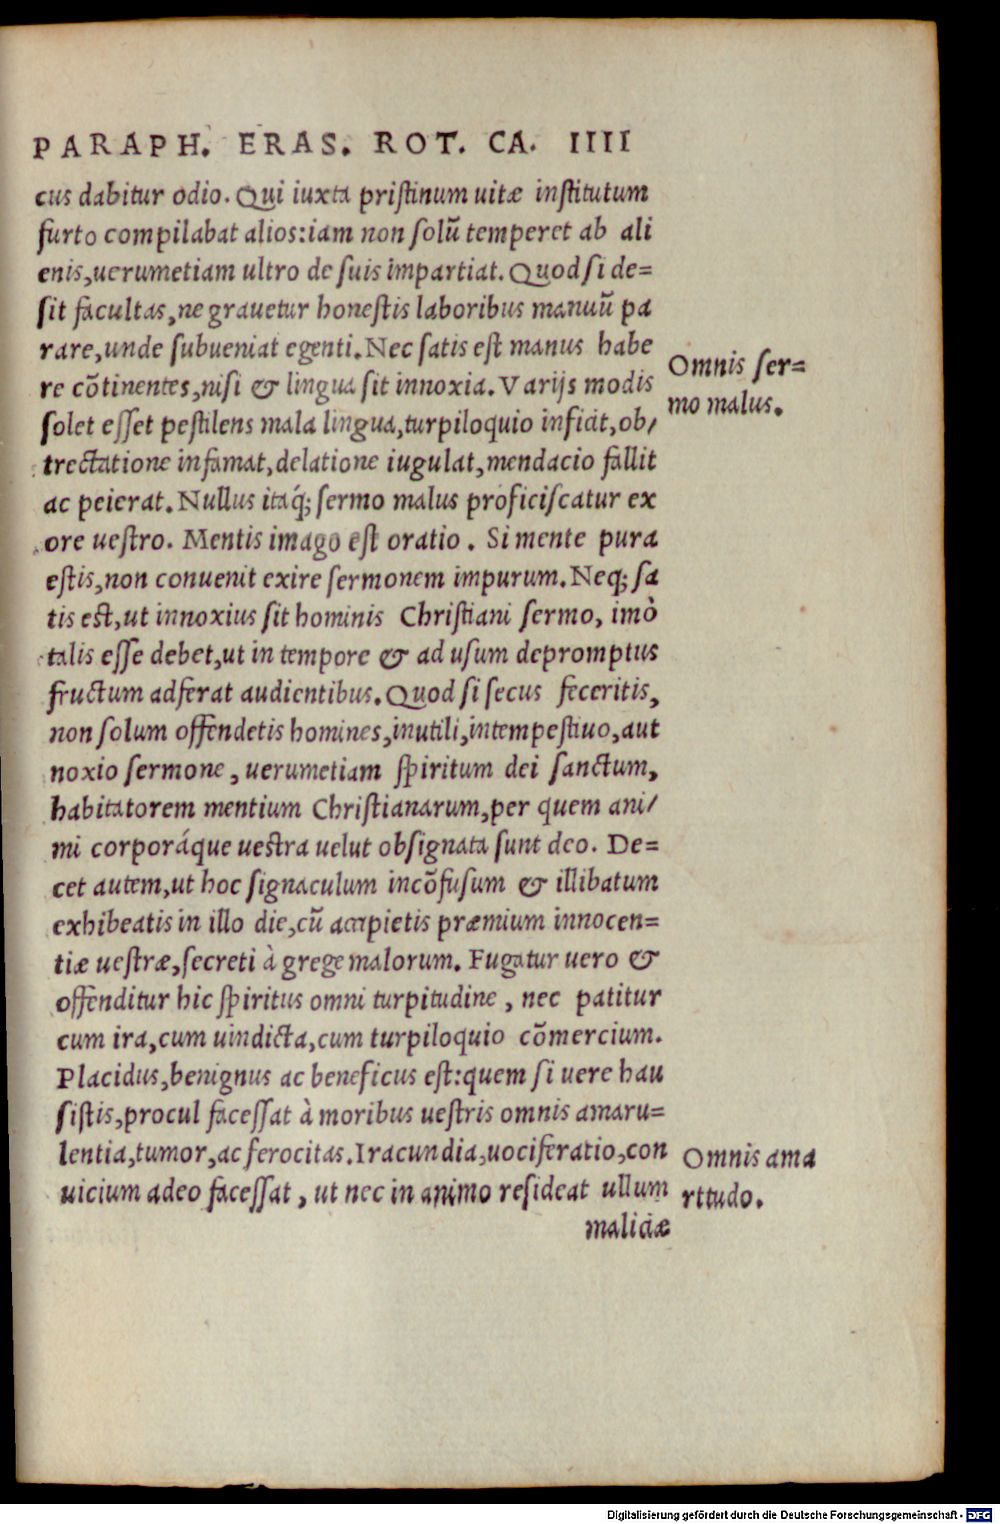 PARAPH. ERAS. ROT. CA. IIII
cus dabitur odio. Qui iuxta pristinum uitæ institutum
furto compilabat alios:iam non solũ temperet ab ali
enis,uerumetiam ultro de suis impartiat. Quod si de=
sit facultas, ne grauetur honestis laboribus manuũ pa
rare, unde subueniat egenti. Nec satis est manus habe
re cõtinentes, nisi & lingua sit innoxia. Varijs modis
solet esset pestilens mala lingua, turpiloquio inficit, ob/
trectatione infamat, delatione iugulat, mendacio fallit
ac peierat. Nullus itaq́; sermo malus proficiscatur ex
ore uestro. Mentis imago est oratio. Si mente pura
estis, non conuenit exire sermonem impurum. Neq; sa
tis est, ut innoxius sit hominis Christiani sermo, imò
talis esse debet, ut in tempore & ad usum depromptus
fructum adferat audientibus. Quod si secus feceritis,
non solum offendetis homines, inutili, intempestiuo, aut
noxio sermone, uerumetiam spiritum dei sanctum,
habitatorem mentium Christianarum, per quem ani/
mi corporáque uestra uelut obsignata sunt deo. De=
cet autem, ut hoc signaculum incõfusum & illibatum
exhibeatis in illo die, cũ accipietis præmium innocen=
tiæ uestræ, secreti à grege malorum. Fugatur uero &
offenditur hic spiritus omni turpitudine, nec patitur
cum ira, cum uindicta, cum turpiloquio cõmercium.
Placidus, benignus ac beneficus est: quem si uere hau
sistis, procul facessat à moribus uestris omnis amaru=
lentia, tumor, ac ferocitas. Iracundia, uociferatio, con
uicium adeo facessat, ut nec in animo resideat ullum
maliciæ
Omnis ser=
mo malus.
Omnis ama
rttudo.
Digitalisierung gefördert durch die Deutsche Forschungsgemeinschaft - DFG